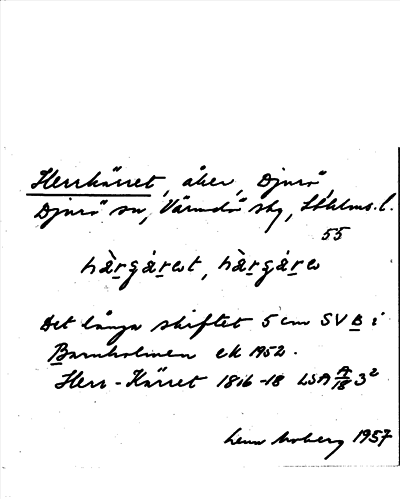 Herrkärret, åker, Djurö,
Djurö sn, Värmdö skg, Sthlms. l.
55
Det långa skiftet 5 cm SV B i
Barnholmen ek 1952.
Herr-Kärret 1816-18 LSA A/18 3²
Lena Moberg 1957